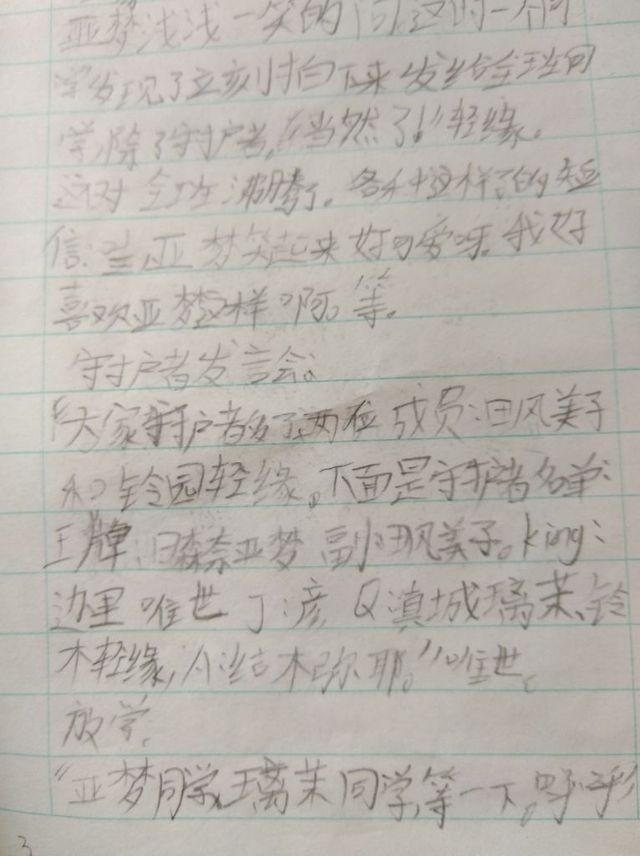 亚梦浅浅一笑的问这时一个同
学发现了立刻拍下来发给全班同
学,除了守护者,"当然了!"轻缘。
这对全班沸腾了。各种这样的短
信:当亚梦笑起来好可爱呀。我好
喜欢亚梦这样啊。等。
守护者发言会。
"大家守护者多了两位成员:田风美子
和铃园轻缘。下面是守护者名单:
王牌:日森奈亚梦 副:田风美子。king:
边里唯世 J:彦 Q滇城璃茉、铃
木轻缘,小:结木弥耶。"唯世。
放学。
"亚梦同学,璃茉同学,等一下。呼
3